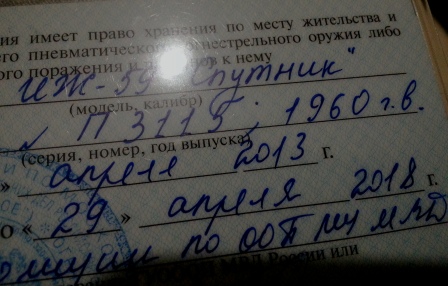 ия имеет право хранения по месту жительства и
его пневматического огнестрельного оружия либо
ого поражения и к нему
ИЖ-59 "Спутник"
(модель, калибр)
П 3115; 1960 г.в.
(серия, номер, год выпуска)
» апреля 2013 г.
о « 29 » апреля 2018 г.
по ООП
МВД России или